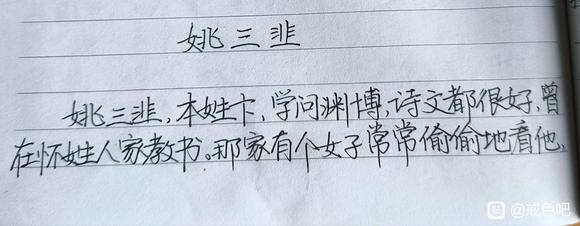 姚三韭
姚三韭,本姓卞,学问渊博,诗文都很好,曾
在怀姓人家教书。那家有个女子常常偷偷地看他,
贴 @戒色吧